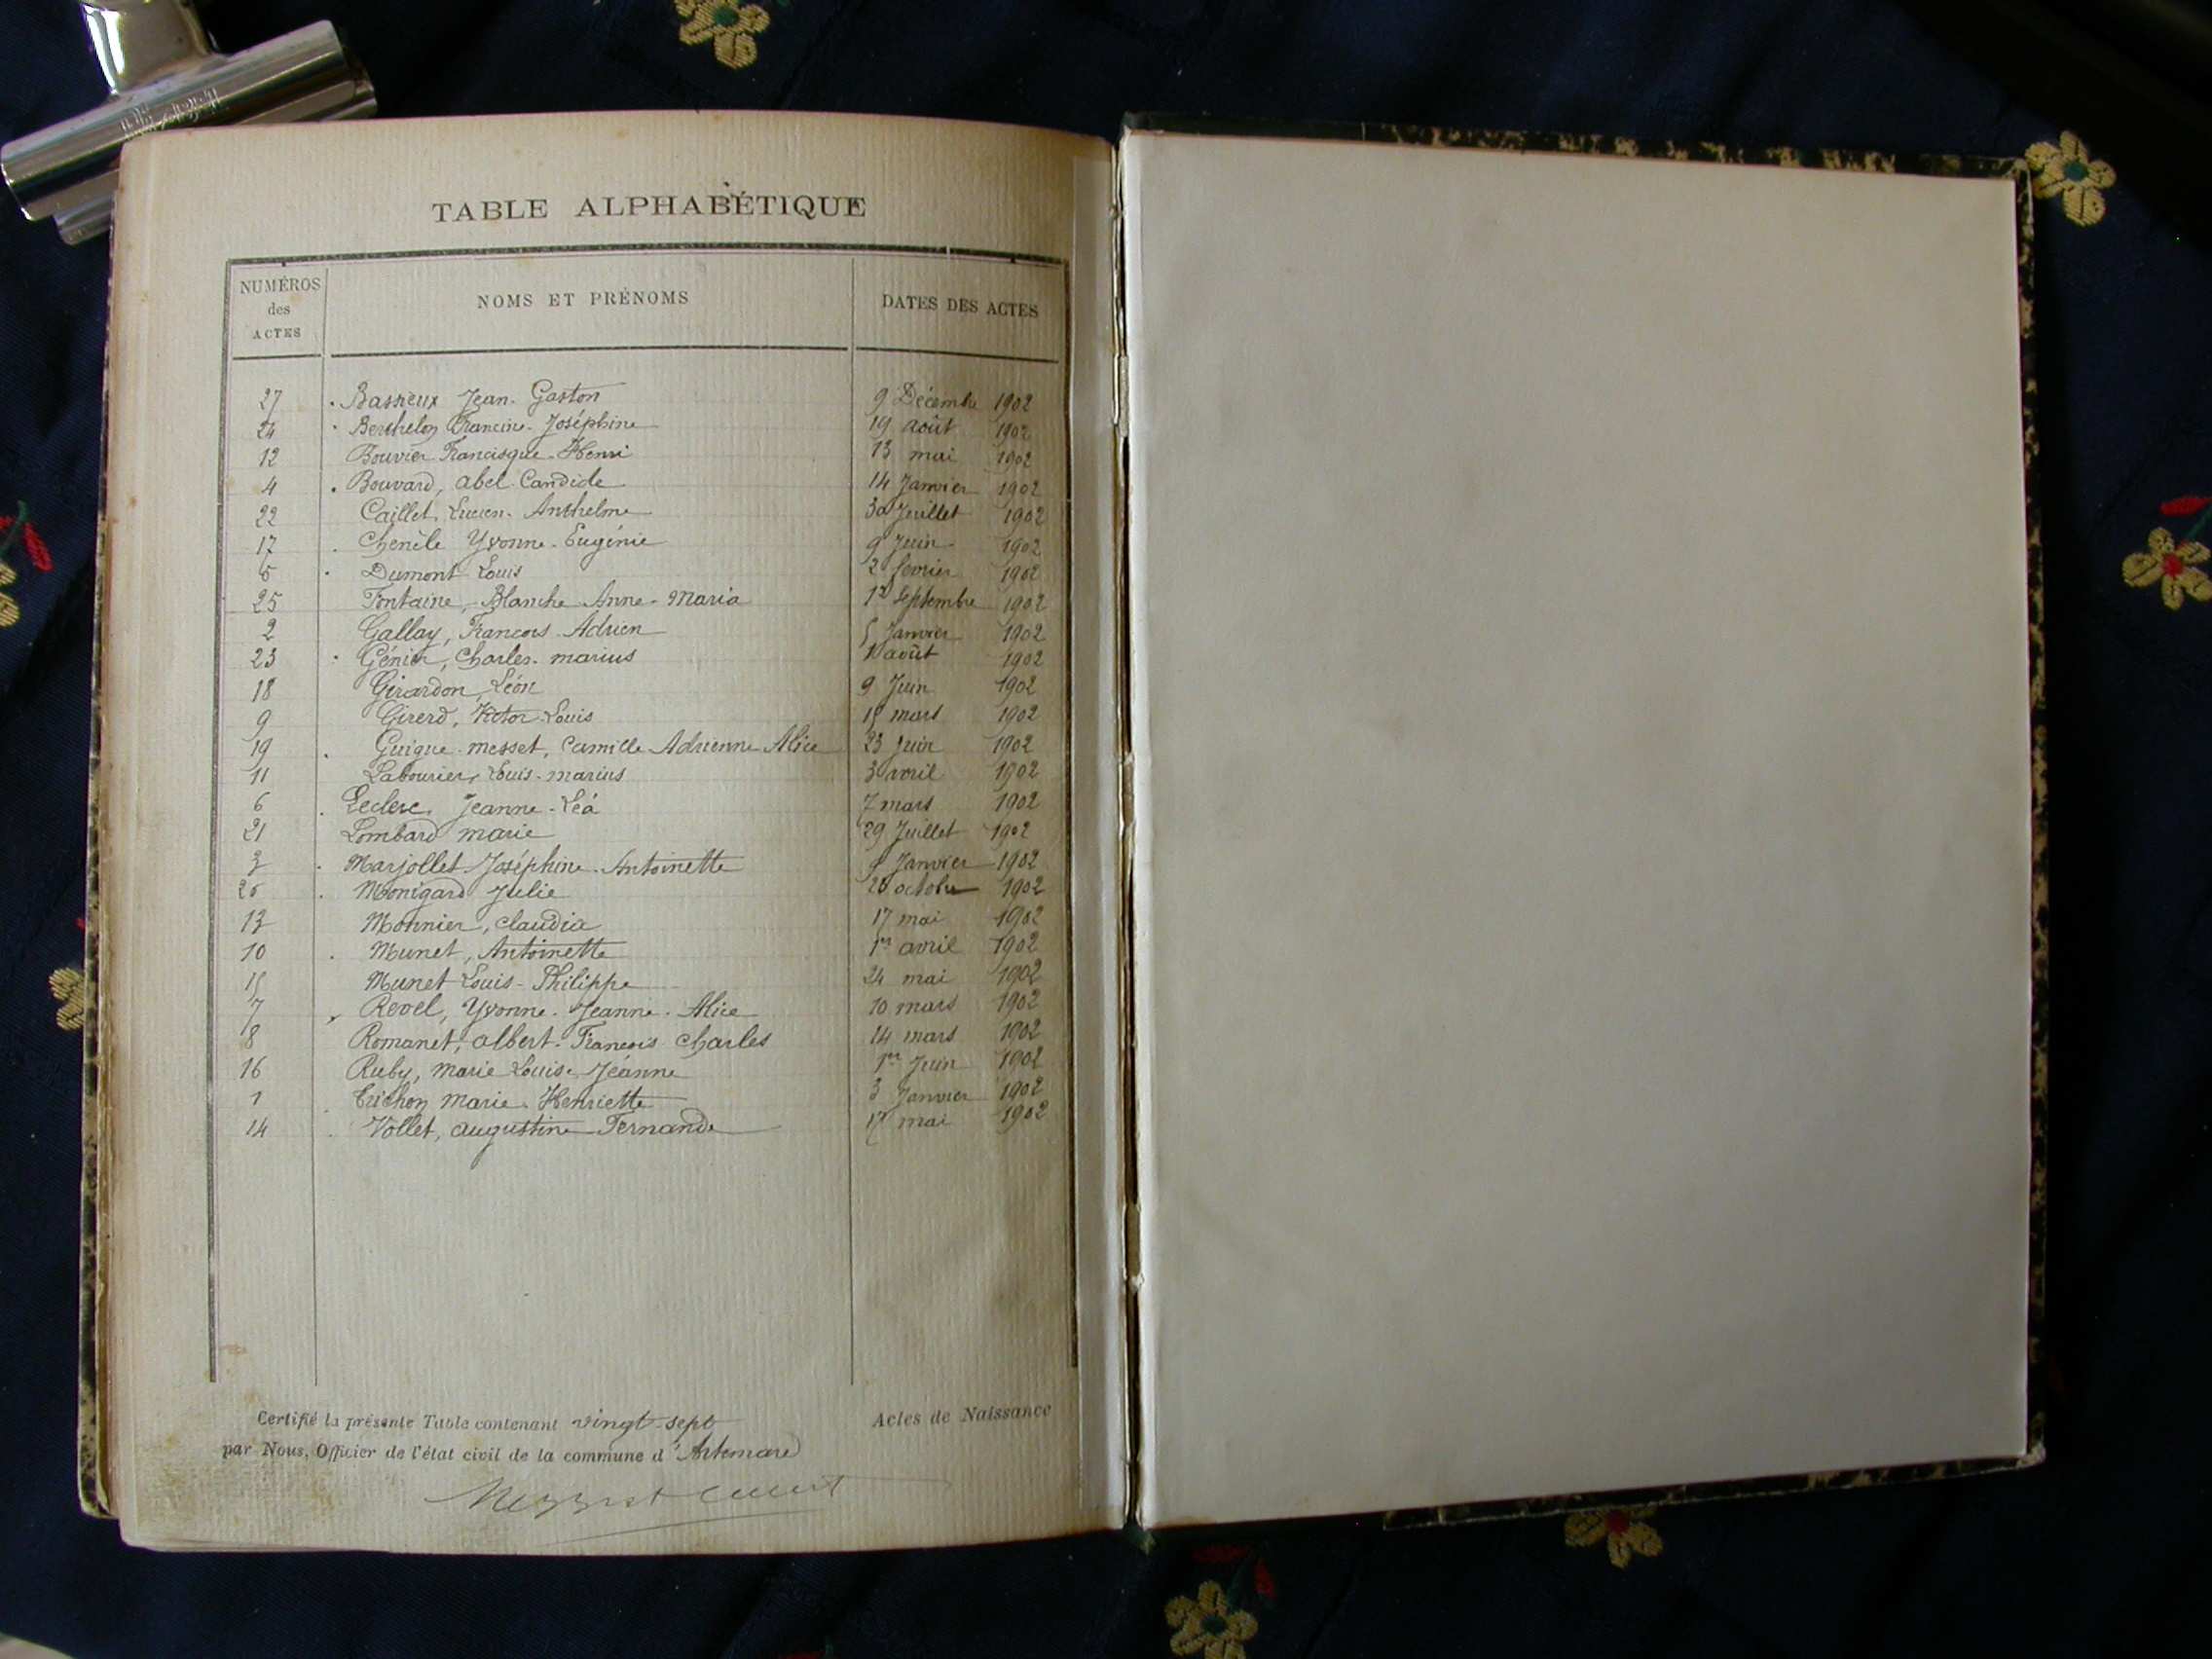 TABLE ALPHABÉTIQUE
NUMÉROS des ACTES NOMS ET PRÉNOMS DATES DES ACTES
27 Bassieux Jean-Gaston 9 Décembre 1902
24 Berthelon Francine-Joséphine 19 août 1902
12 Bouvier Francisque-Henri 13 mai 1902
4 Bouvard, Abel Candide 14 Janvier 1902
22 Caillet, Lucien-Anthelme 30 Juillet 1902
17 Chenèle Yvonne-Eugénie 9 Juin 1902
5 Dumont Louis 2 février 1902
25 Fontaine, Blanche Anne-Maria 1902
2 Gallay, François-Adrien 5 Janvier 1902
23 Génier, Charles-marius août 1902
18 Girardon, Léon 9 Juin 1902
9 Girerd, Victor-Louis 15 mars 1902
19 Guigue-messet, Camille Adrienne Alice 23 Juin 1902
11 Labourier, Louis-marius 3 avril 1902
6 Leclerc Jeanne-Léa 7 mars 1902
21 Lombard marie 29 Juillet 1902
3 Marjollet Joséphine-Antoinette Janvier 1902
26 Monigard Julie octobre 1902
13 Monnier, claudia 17 mai 1902
10 Munet, Antoinette 1er avril 1902
15 Munet Louis-Philippe 24 mai 1902
7 Revel, Yvonne-Jeanne-Alice 10 mars 1902
8 Romanet, Albert-François Charles 14 mars 1902
16 Ruby, marie Louise Jeanne 1er Juin 1902
1 Trichon marie-Henriette 3 Janvier 1902
14 Vollet, augustine Fernande mai 1902
Certifié la présente Table contenant vingt-sept Actes de Naissance
par Nous, Officier de l'état civil de la commune d'Artemare